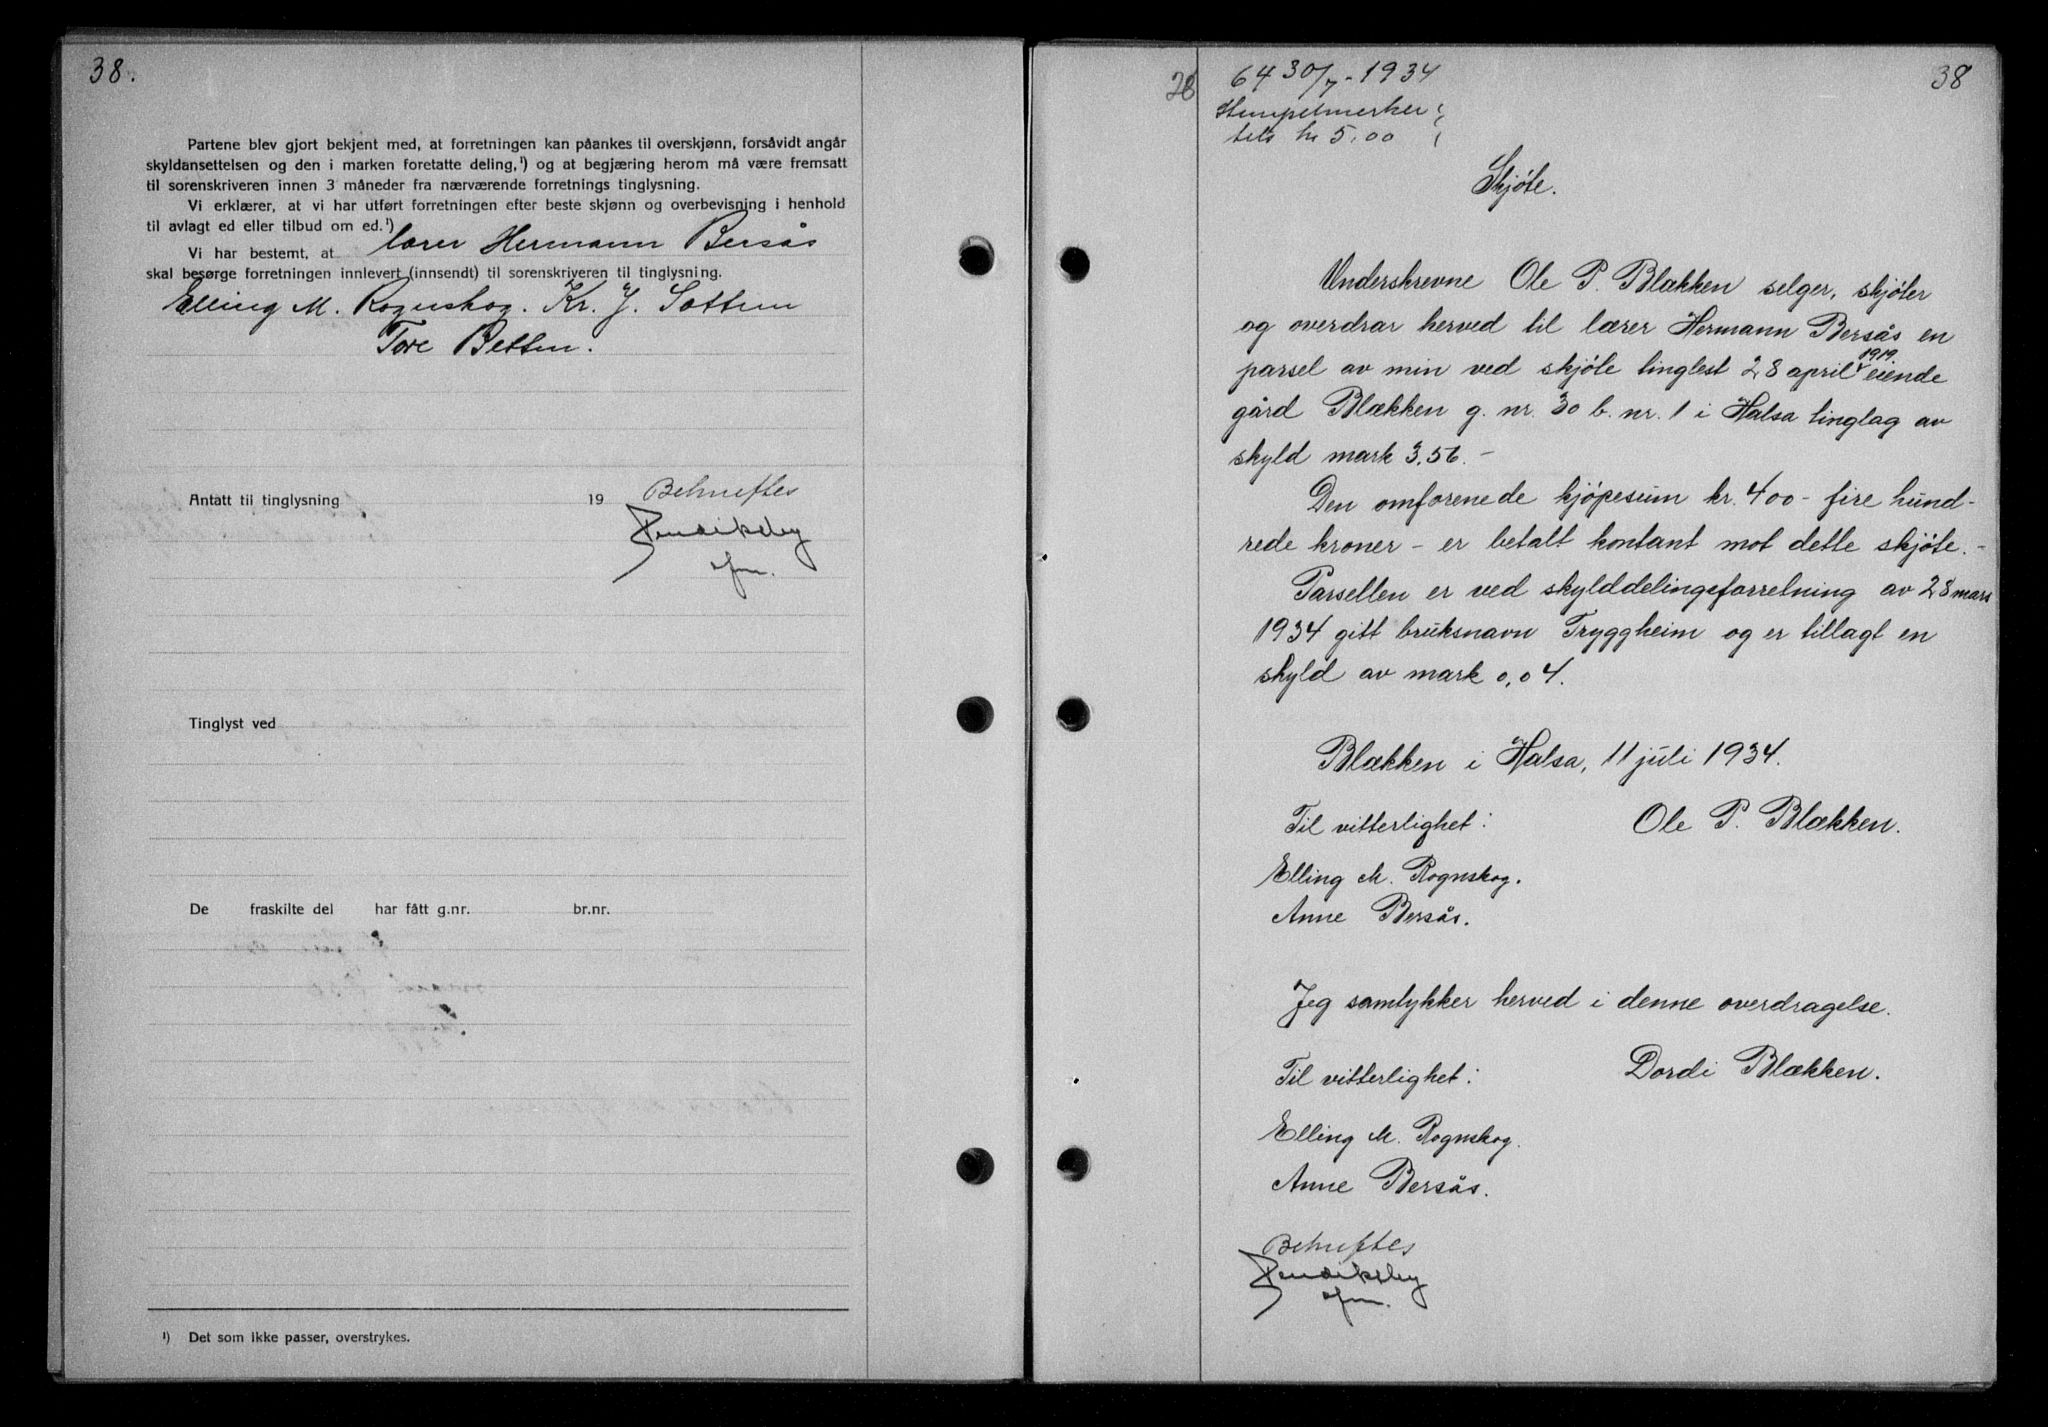 38.
Partene blev gjort bekjent med, at forretningen kan påankes til overskjønn, forsåvidt angår
skyldansettelsen og den i marken foretatte deling,¹) og at begjæring herom må være fremsatt
til sorenskriveren innen 3 måneder fra nærværende forretnings tinglysning.
Vi erklærer, at vi har utført forretningen efter beste skjønn og overbevisning i henhold
til avlagt ed eller tilbud om ed.¹)
Vi har bestemt, at lærer Hermann Bersås
skal besørge forretningen innlevert (innsendt) til sorenskriveren til tinglysning.
Elling M. Rognskog. Kr. J. Sottem
Tore Betten.
Antatt til tinglysning 19
Bekreftes
Tinglyst ved
De fraskilte del har fått g.nr. br.nr.
¹) Det som ikke passer, overstrykes.
28
64 30/7-1934
38
Stempelmerker
kr 5,00
Skjøte.
Underskrevne Ole P. Blækken selger, skjøter
og overdrar herved til lærer Hermann Bersås en
parsel av min ved skjøte tinglest 28 april 1919 eiende
gård Blækken g. nr. 30 b. nr. 1 i Halsa tinglag av
skyld mark 3,56. -
Den omforenede kjøpesum kr. 400 - fire hund-
rede kroner - er betalt kontant mot dette skjøte. -
Parsellen er ved skylddelingsforretning av 28 mars
1934 gitt bruksnavn Tryggheim og er tillagt en
skyld av mark 0,04.
Blækken i Halsa, 11 juli 1934.
Til vitterlighet: Ole P. Blækken.
Elling M. Rognskog.
Anne Bersås.
Jeg samtykker herved i denne overdragelse.
Til vitterlighet: Dordi Blækken.
Elling M. Rognskog.
Anne Bersås.
Bekreftes